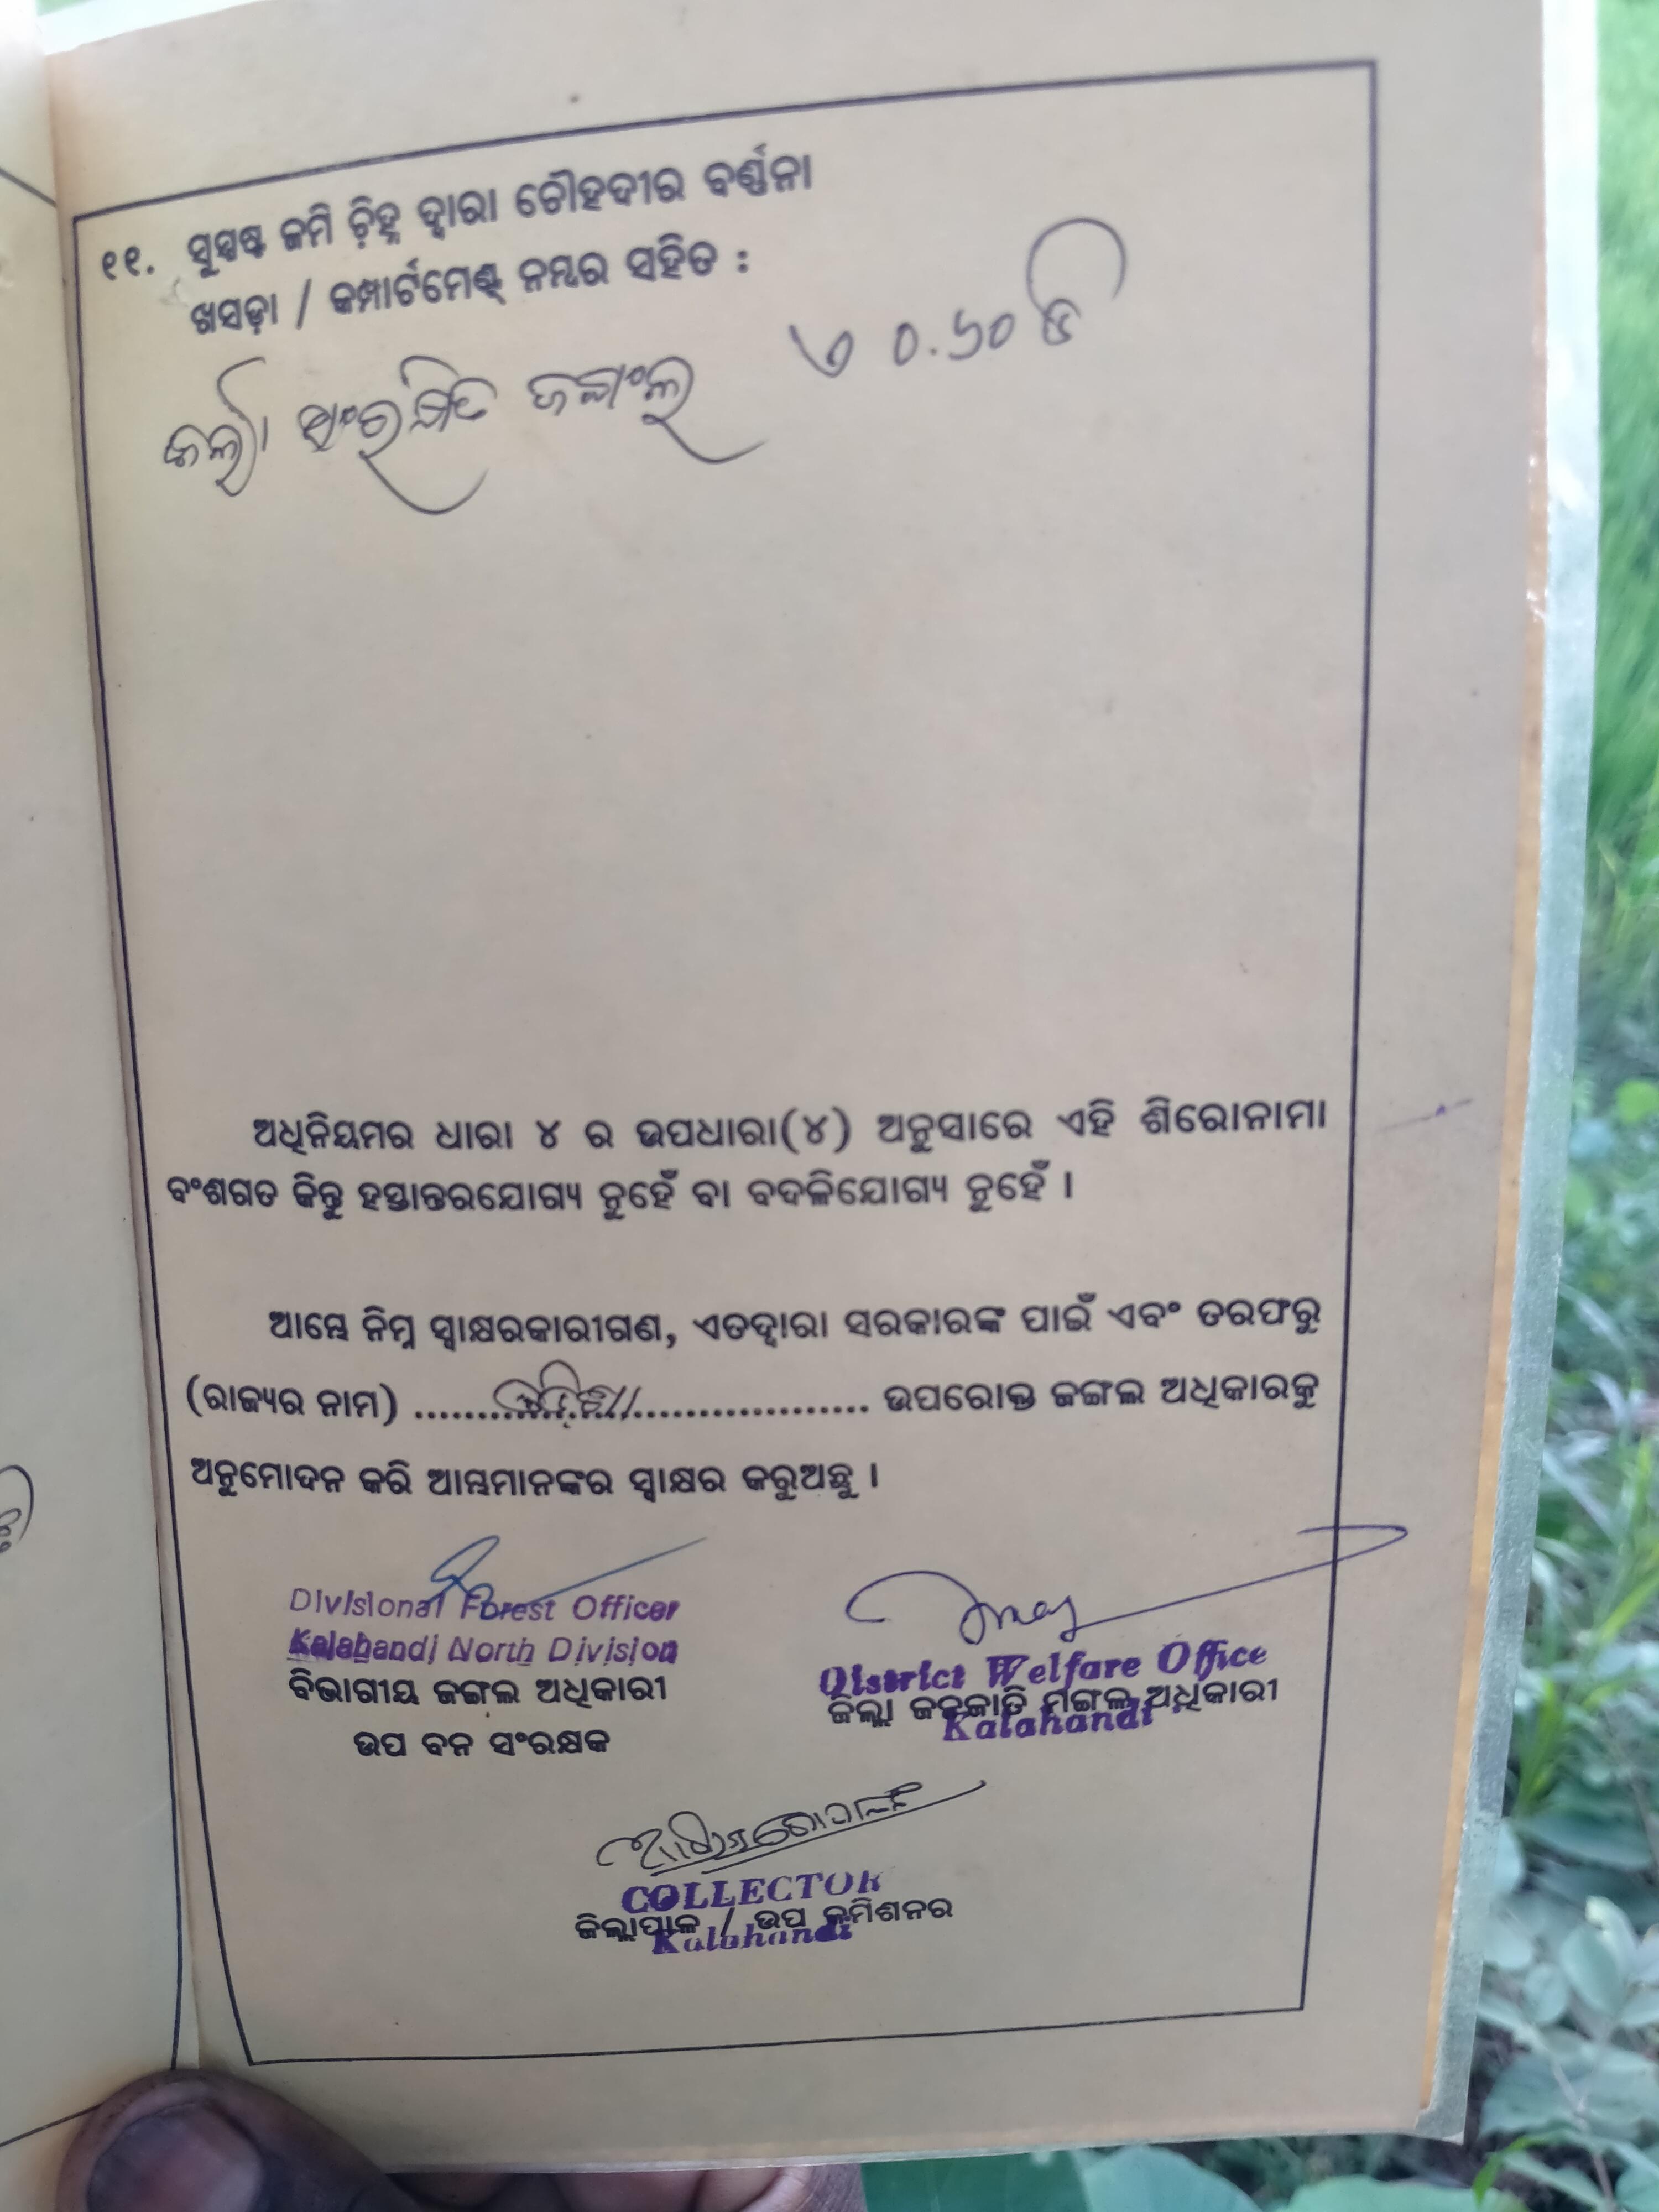 ୧୧. ସୁସ୍ପଷ୍ଟ ଜମି ଚ଼ିହ୍ନ ଦ୍ଵାରା ଚୌହଦୀର ବର୍ଣ୍ଣନା
ଖସଡ଼ା / କମ୍ପାର୍ଟମେଣ୍ଟ୍ ନମ୍ବର ସହିତ :
ସଂରକ୍ଷିତ ଜଙ୍ଗଲ ଏ ୦.୬୦ ଡି
ଅଧିନିୟମର ଧାରା ୪ ର ଉପଧାରା(୪) ଅନୁସାରେ ଏହି ଶିରୋନାମା
ବଂଶଗତ କିନ୍ତୁ ହସ୍ତାନ୍ତରଯୋଗ୍ୟ ନୁହେଁ ବା ବଦଳିଯୋଗ୍ୟ ନୁହେଁ ।
ଆମ୍ଭେ ନିମ୍ନ ସ୍ଵାକ୍ଷରକାରୀଗଣ, ଏତଦ୍ଵାରା ସରକାରଙ୍କ ପାଇଁ ଏବଂ ତରଫରୁ
(ରାଜ୍ୟର ନାମ) ..... ଓଡ଼ିଶା ..... ଉପରୋକ୍ତ ଜଙ୍ଗଲ ଅଧିକାରକୁ
ଅନୁମୋଦନ କରି ଆମ୍ଭମାନଙ୍କର ସ୍ଵାକ୍ଷର କରୁଅଛୁ ।
Divisional Forest Officer
Kalahandi North Division
ବିଭାଗୀୟ ଜଙ୍ଗଲ ଅଧିକାରୀ
ଉପ ବନ ସଂରକ୍ଷକ
District Welfare Office
ଜିଲ୍ଲା ଜନଜାତି ମଙ୍ଗଲ ଅଧିକାରୀ
Kalahandi
COLLECTOR
ଜିଲ୍ଲାପାଳ / ଉପ କମିଶନର
Kalahandi